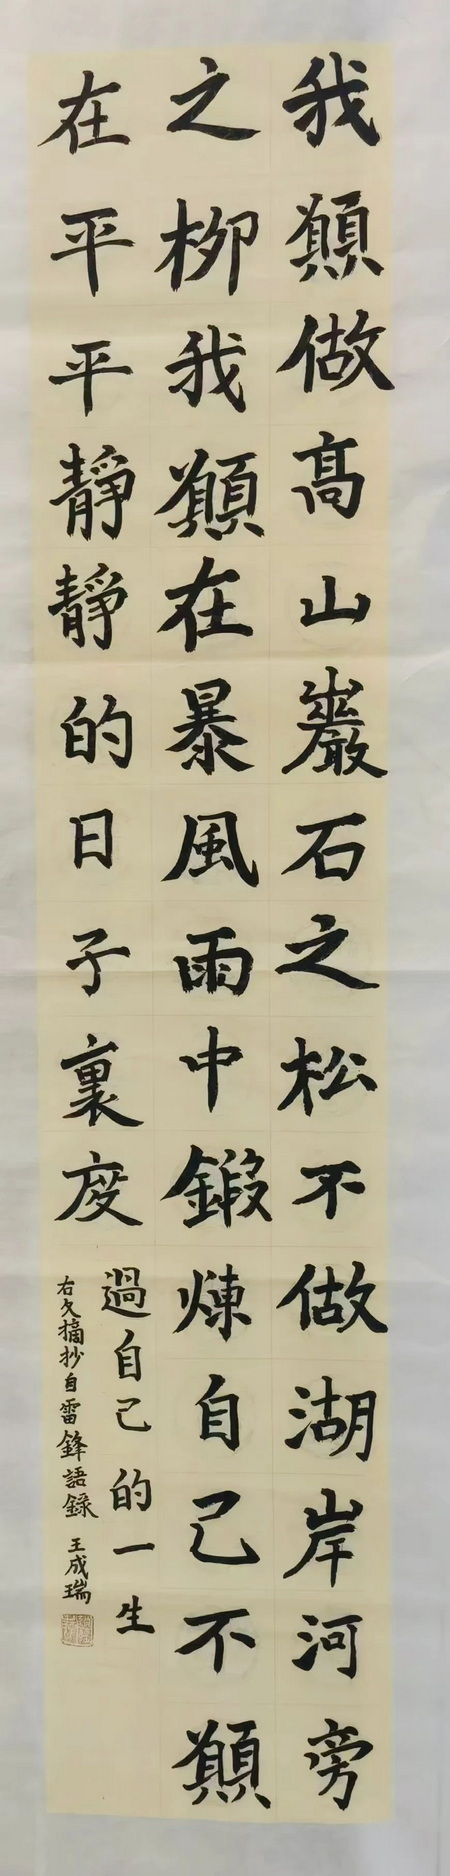 我願做高山巖石之松不做湖岸河旁
之柳我願在暴風雨中鍛煉自己不願
在平平靜靜的日子裏度
過自己的一生
右文摘抄自雷鋒語錄 王成瑞